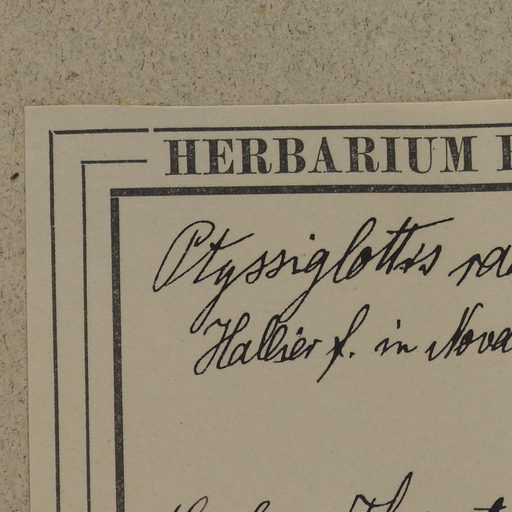 HERBARIUM
Ptyssiglottis
Hallier f. in Nova